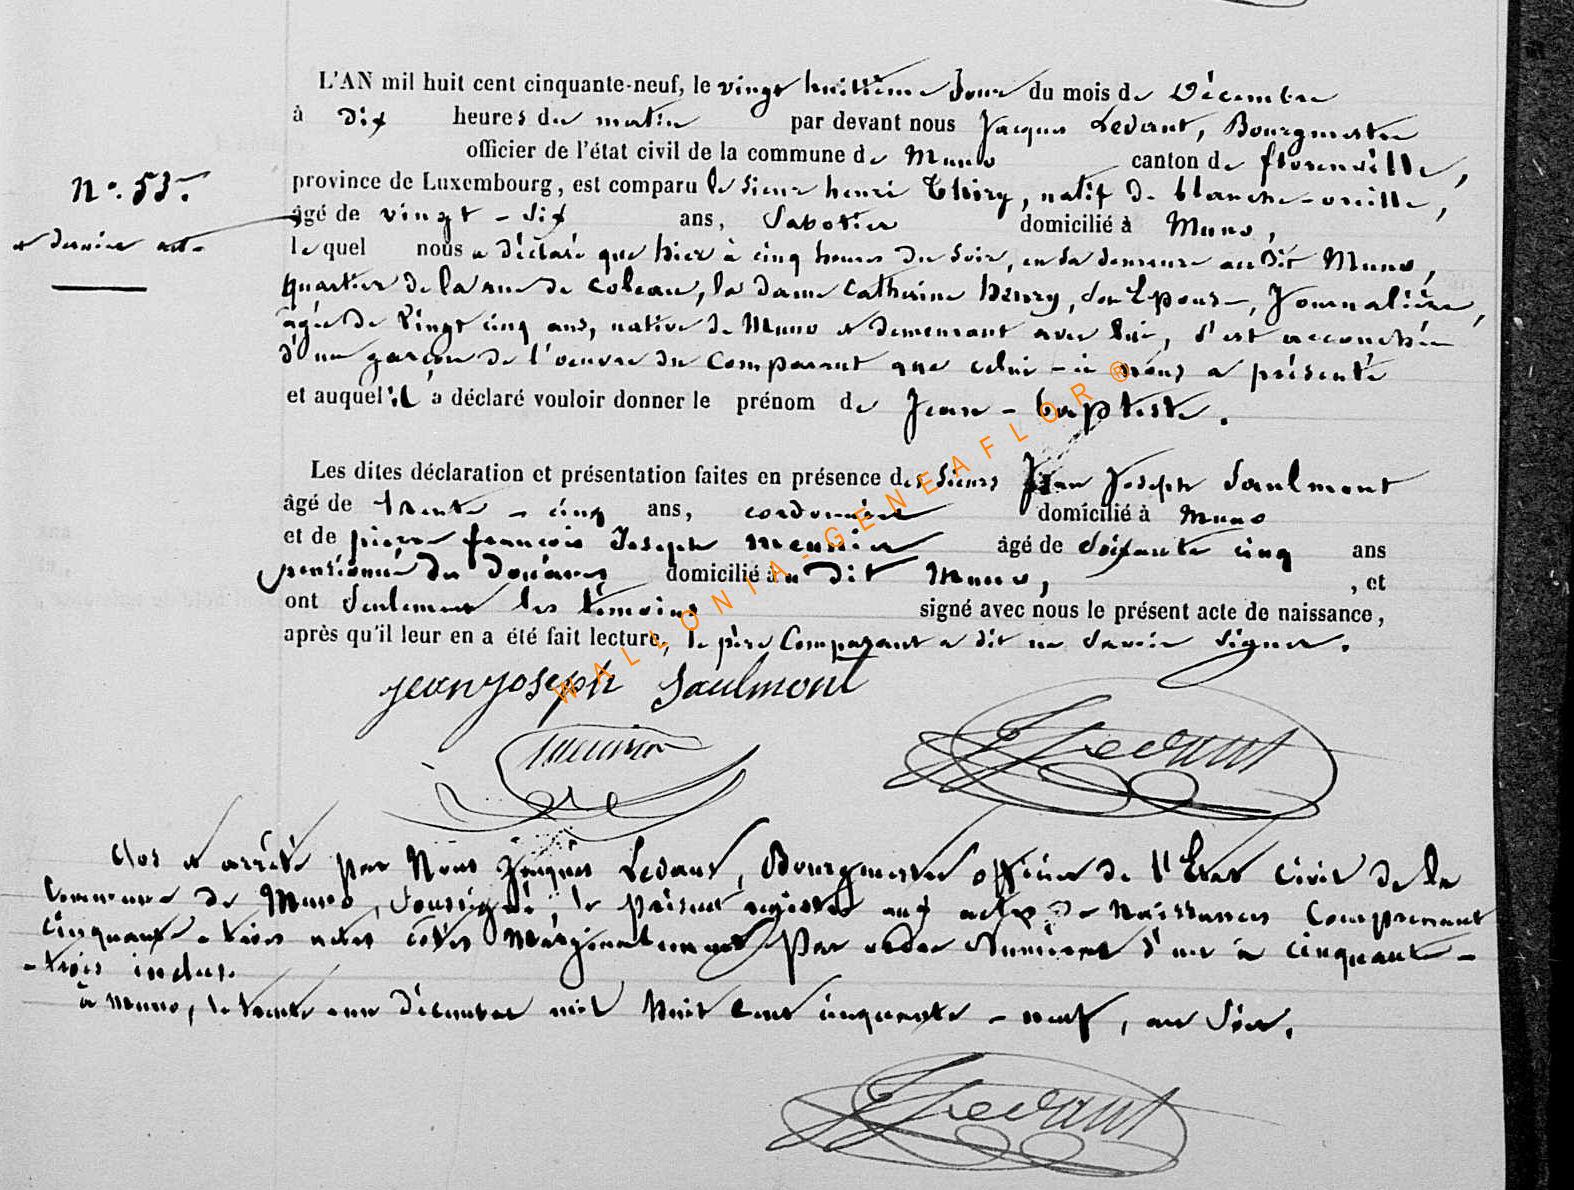 L'AN mil huit cent cinquante-neuf, le vingt huitième Jour du mois de Décembre
à dix heures du matin par devant nous Jacques Ledant, Bourgmestre
officier de l'état civil de la commune de Muno canton de florenville,
N° 53. province de Luxembourg, est comparu le sieur henri Thiry, natif de blanche-oreille,
âgé de vingt-six ans, Sabotier domicilié à Muno,
et dernier acte
le quel nous a déclaré que hier à cinq heures du soir, en sa demeure audit Muno,
quartier de la rue de , la dame Catherine henry, son Epouse, Journalière,
âgée de Vingt cinq ans, native de Muno et demeurant avec lui, s'est accouchée
d'un garçon de l'oeuvre du Comparant que celui-ci nous a présenté
et auquel il a déclaré vouloir donner le prénom de Jean-baptiste.
Les dites déclaration et présentation faites en présence des Sieurs Jean Joseph Saulmont
âgé de trente-cinq ans, cordonnier domicilié à Muno
et de pierre françois Joseph Meunier âgé de Soixante cinq ans
pensionné des douanes domicilié audit Muno, , et
ont Seulement les témoins signé avec nous le présent acte de naissance,
après qu'il leur en a été fait lecture, le père Comparant a dit ne Savoir Signer.
WALLONIA-GENEAFLOR®
jean joseph Saulmont
meunier
J Ledant
Clos et arrêté par Nous Jacques Ledant, Bourgmestre officier de l'Etat Civil de la
Commune de Muno, Soussigné, le présent registre aux actes de Naissances Comprenant
cinquante-trois actes cotés Marginalement Par ordre Numéral d'un à cinquante-
-trois inclus.
à Muno, le trente-un décembre mil huit Cent cinquante-neuf, au Soir.
J Ledant